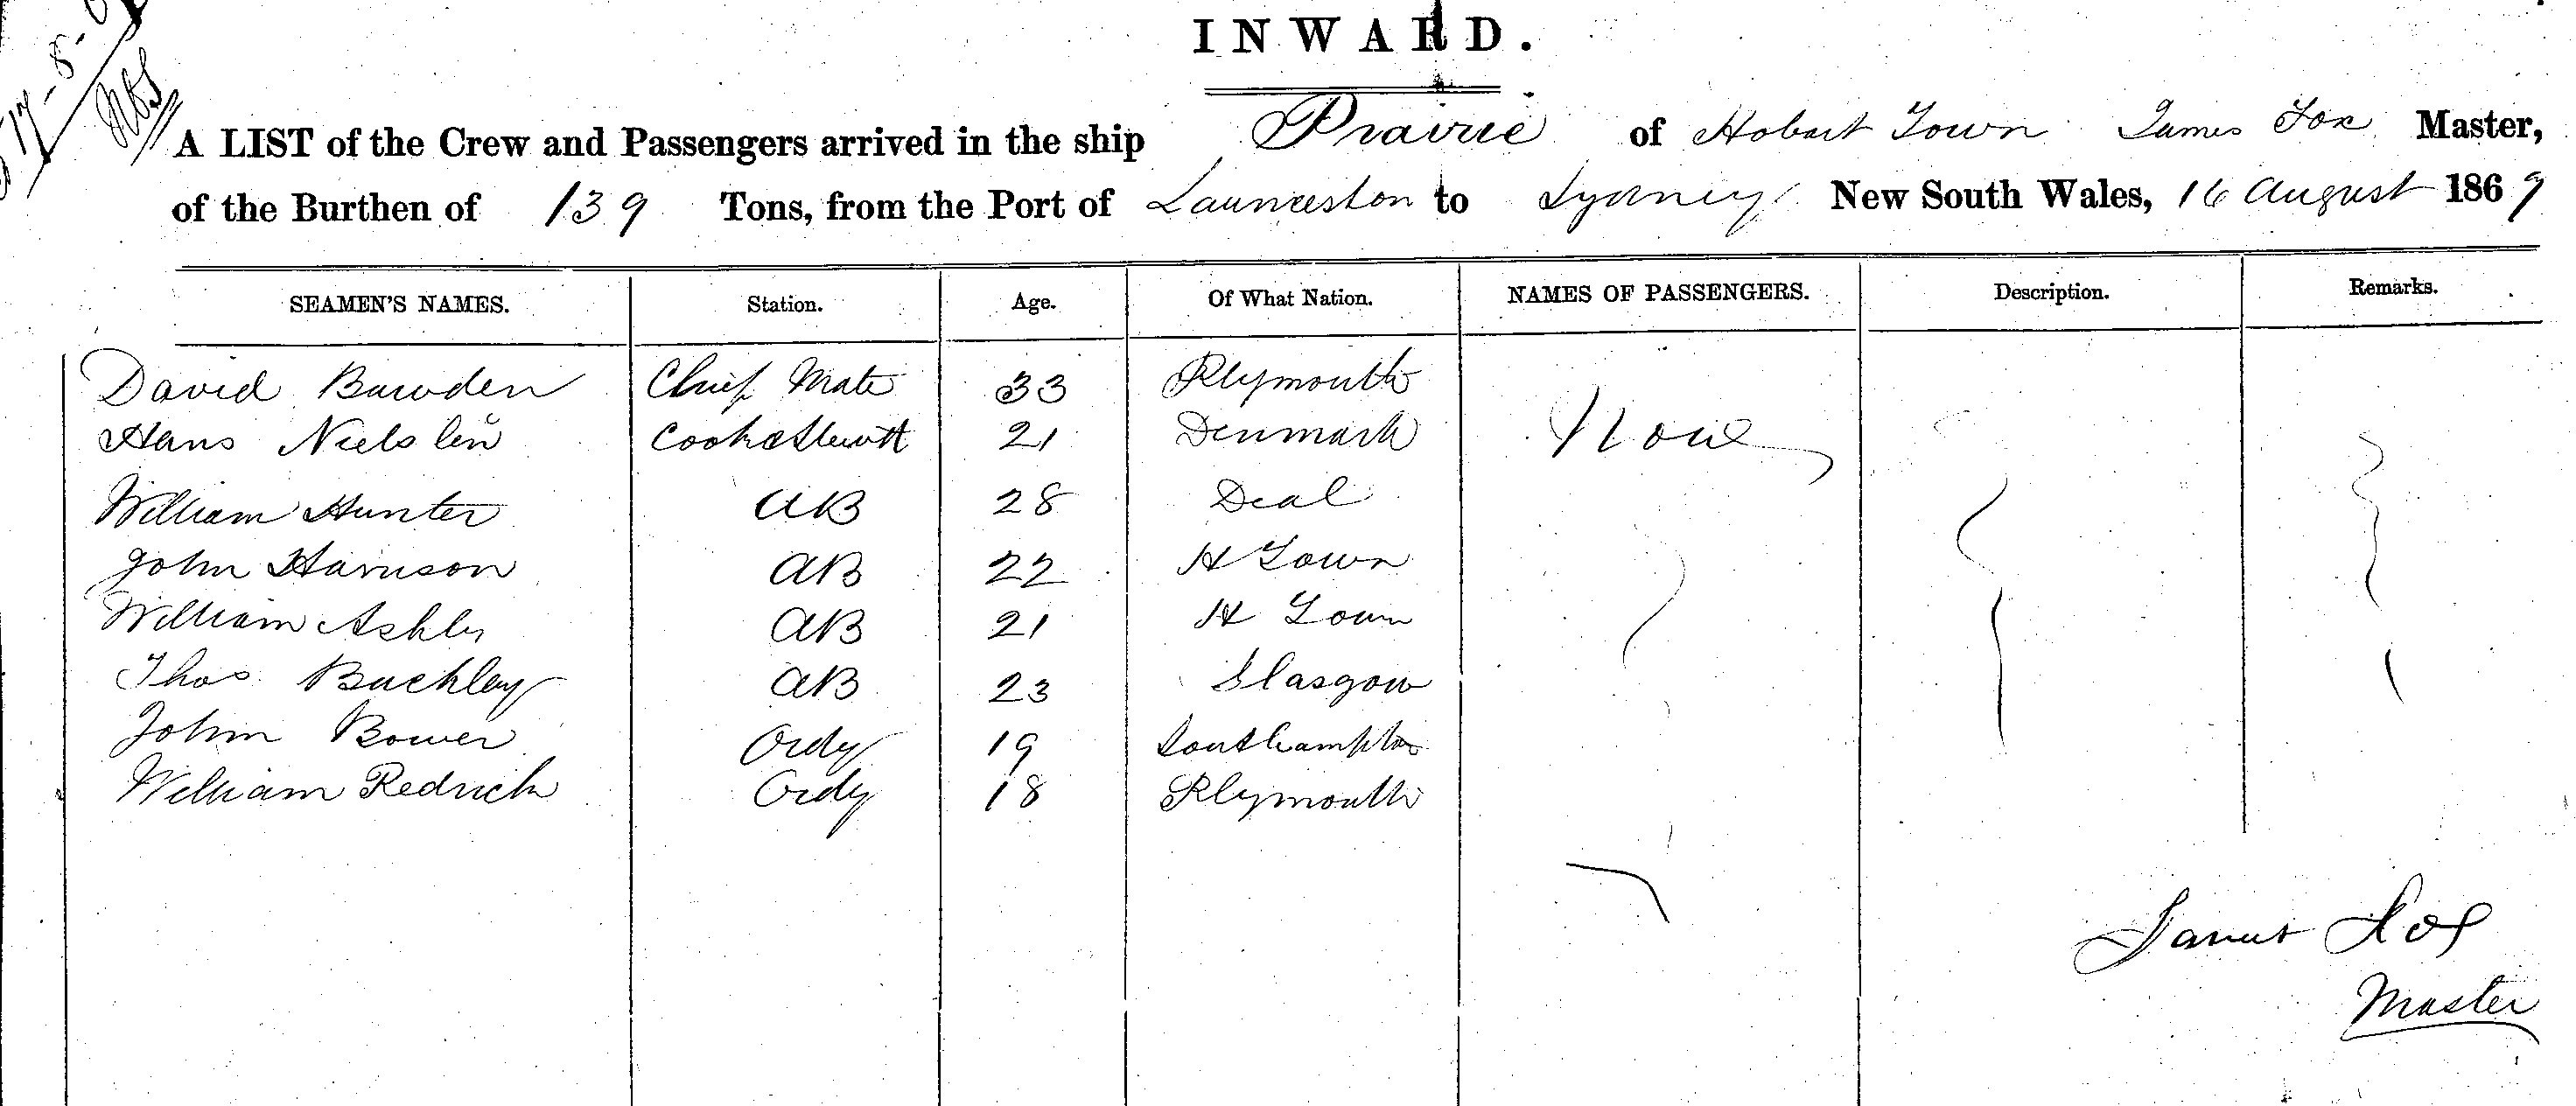 INWARD.
A LIST of the Crew and Passengers arrived in the ship Prairie of Hobart Town James Fox Master,
of the Burthen of 139 Tons, from the Port of Launceston to Sydney New South Wales, 16 August 1869
SEAMEN'S NAMES. Station. Age. Of What Nation. NAMES OF PASSENGERS. Description. Remarks.
David Bawden Chief Mate 33 Plymouth
Hans Nielsen 21 Denmark None
William Hunter AB 28 Deal
John Harrison AB 22 H Town
William AB 21 H Town
Thos Buckley AB 23 Glasgow
John Bower Ordy 19 Southampton
William Redrich Ordy 18 Plymouth
James Fox
Master